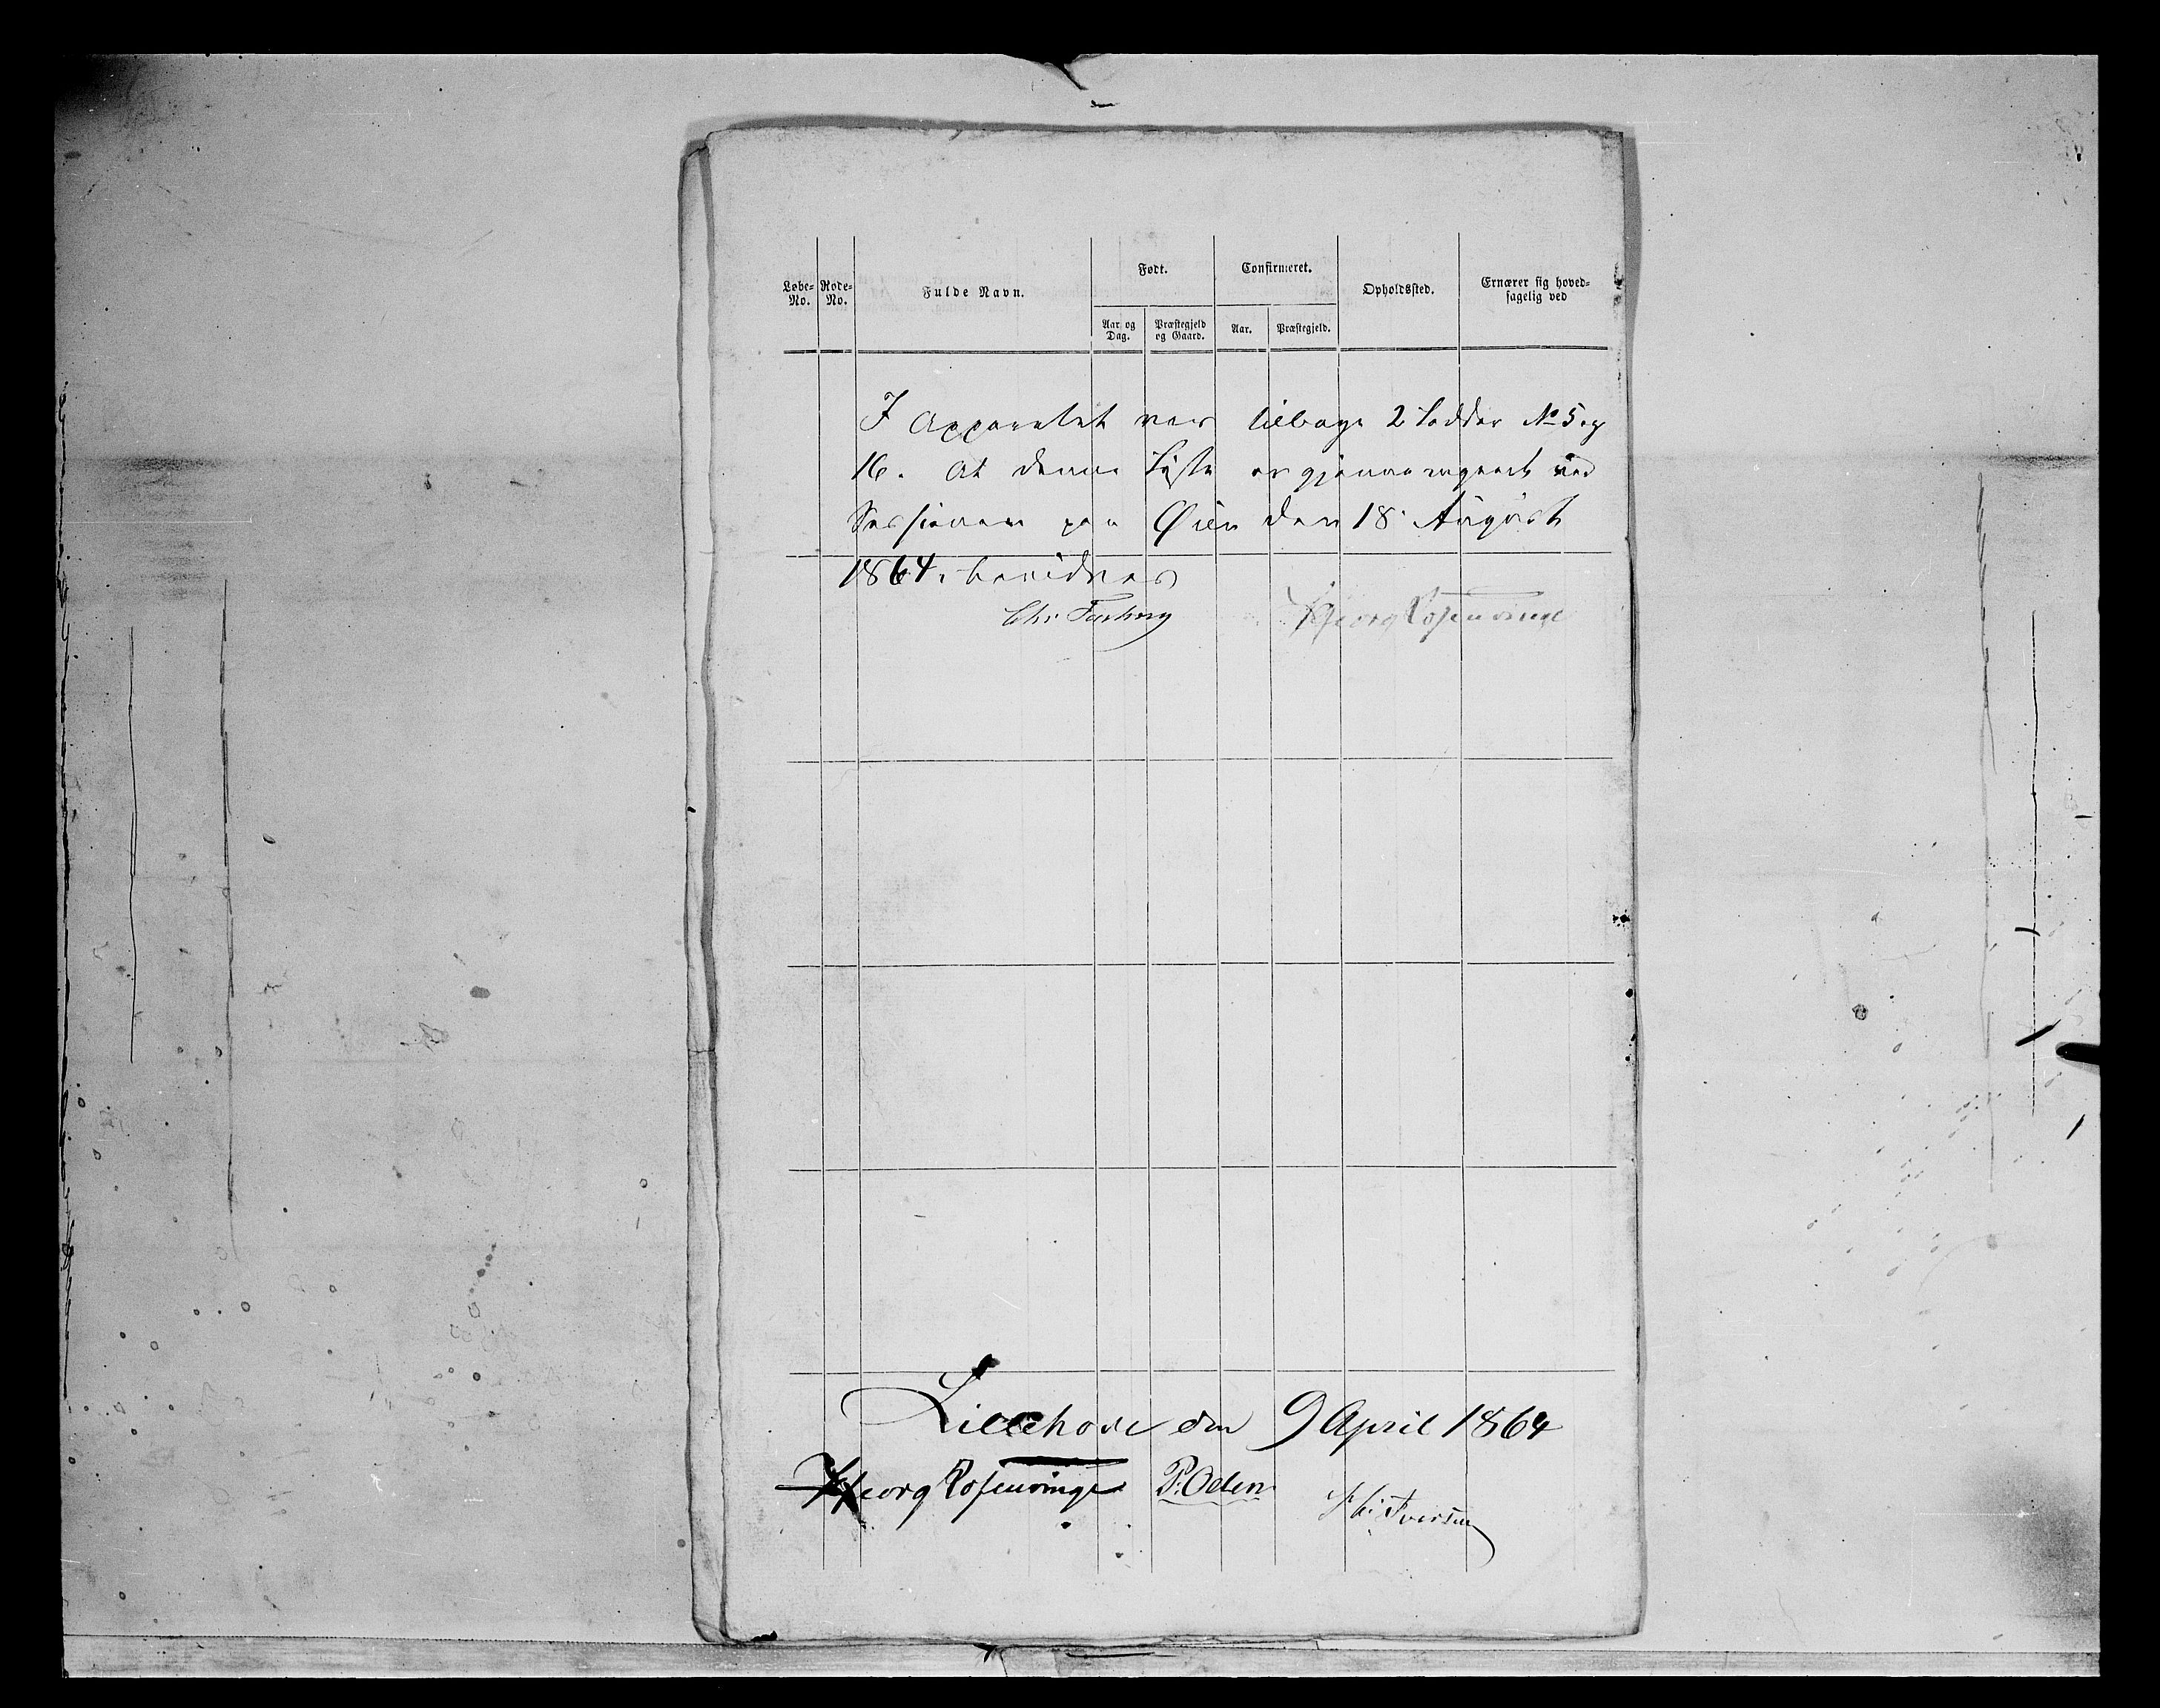 Løbe-No.
Rode-No.
Fulde Navn.
Født.
Aar og Dag.
Præstegjeld og Gaard.
Confirmeret.
Aar.
Præstegjeld.
Opholdssted.
Ernærer sig hoved-
sagelig ved
I Apparatet var tilbage 2 Lodder No 5 og
16. At denne Liste er gjennemgaaet ved
Sessionen paa Øien den 18 August
1864, bevidner
Chr
Georg Rosenvinge
Lillehove den 9 April 1864
Georg Rosenvinge P. Oden Iversen